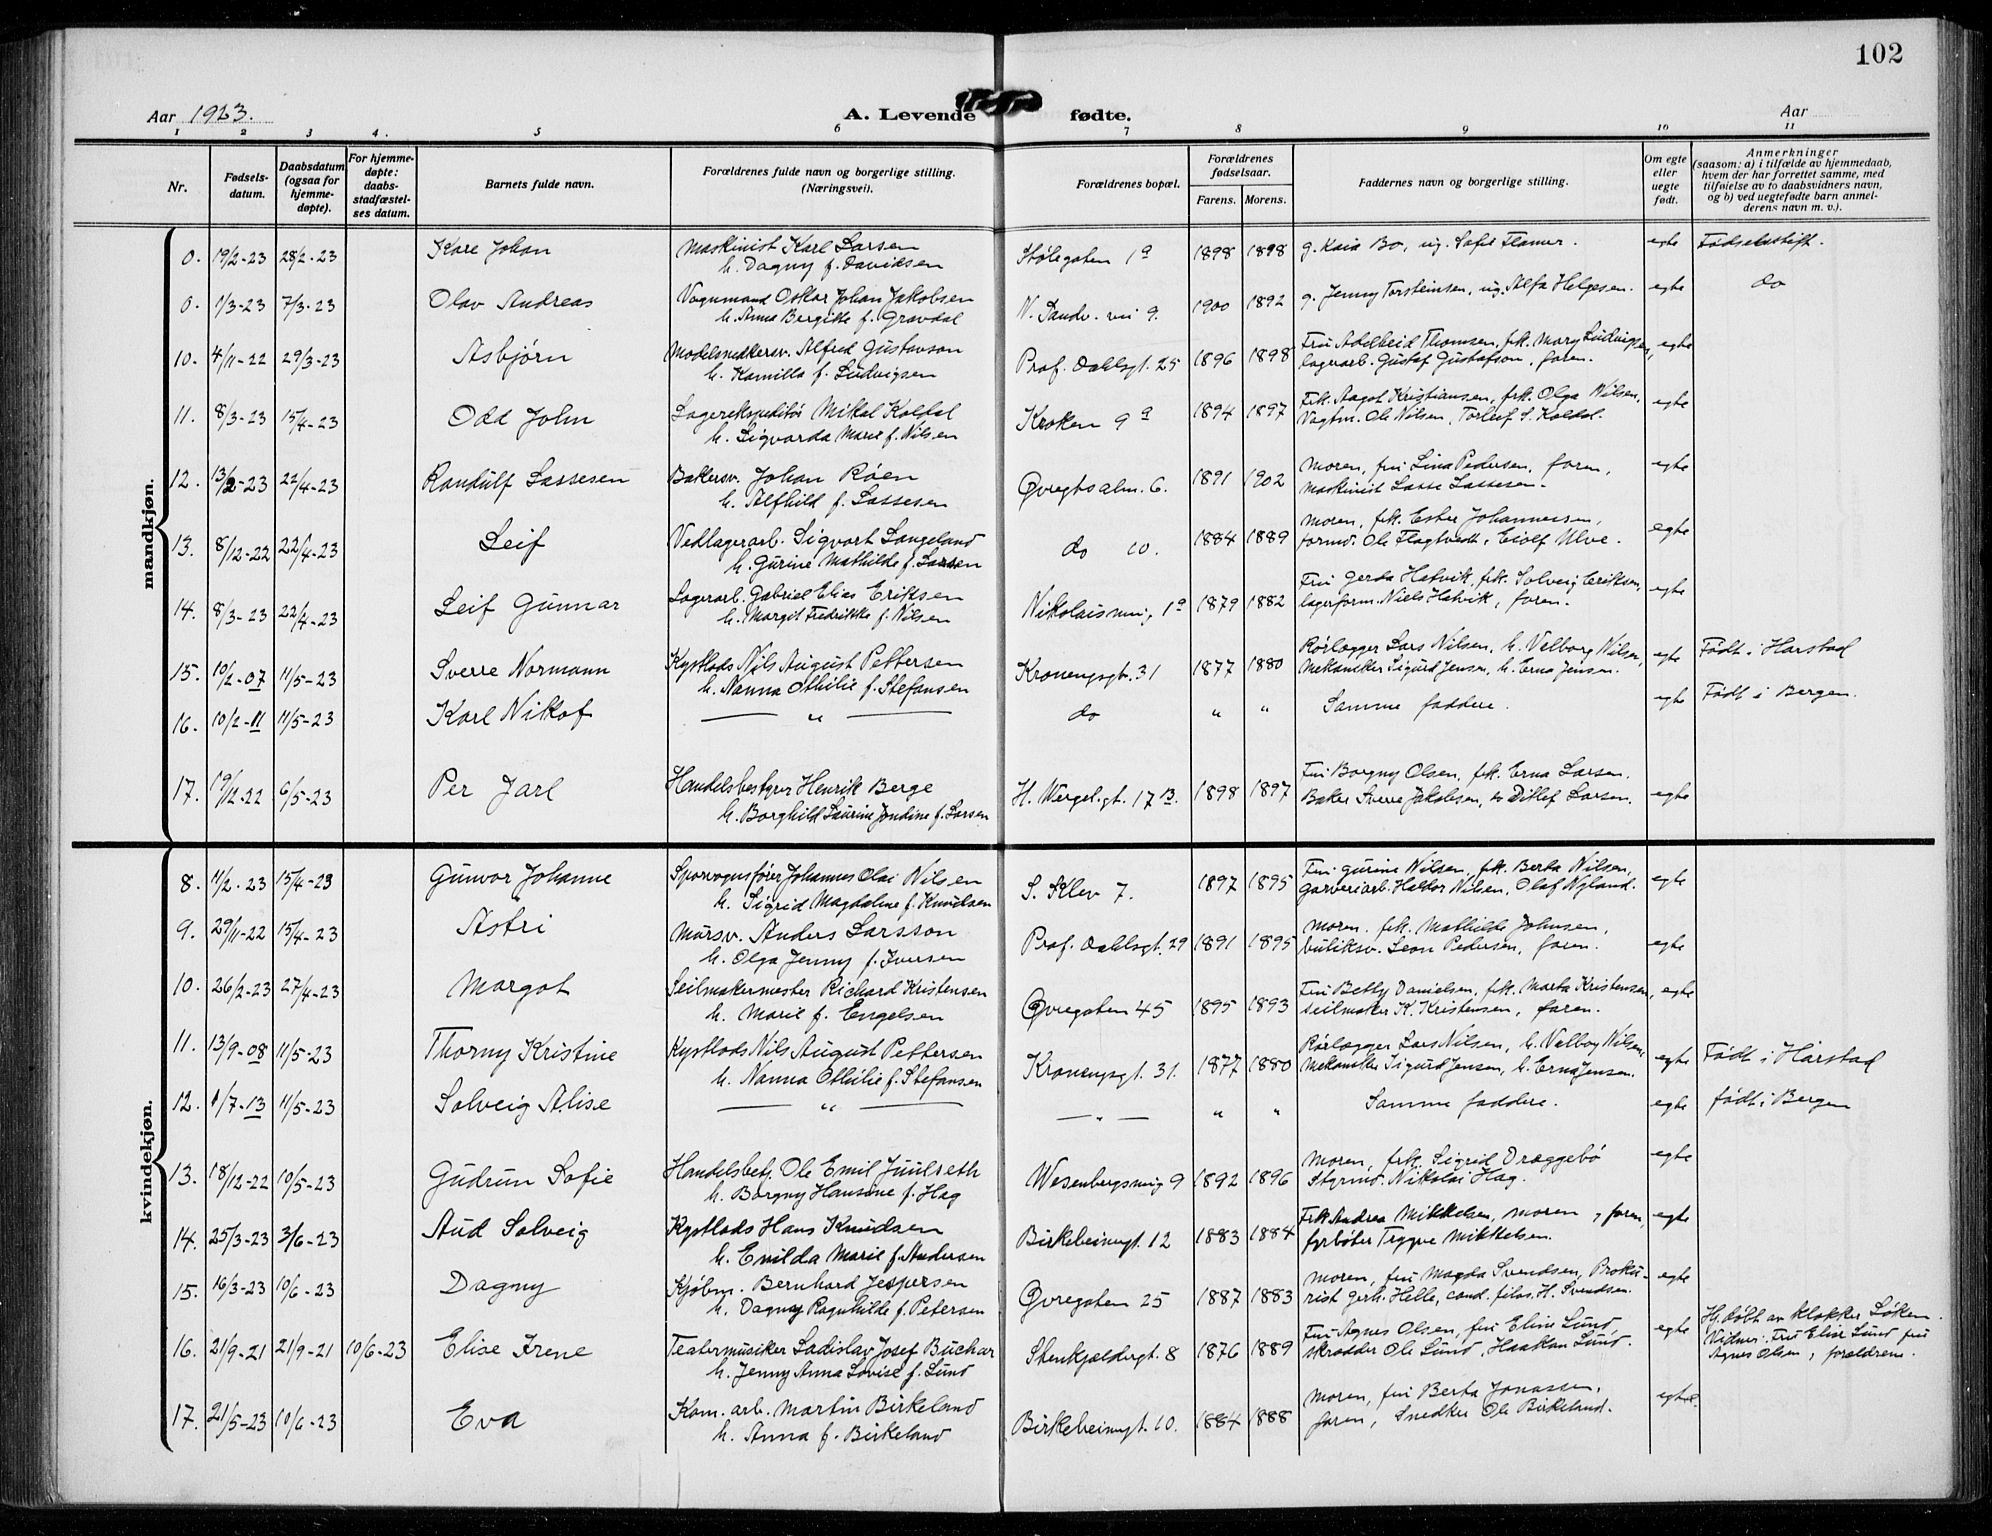 102
Aar 1923.
A. Levende fødte.
Aar
1 2 3 4. 5 6 7 8 9 10 11
Nr.
Fødsels-
datum.
Daabsdatum
(ogsaa for
hjemme-
døpte).
For hjemme-
døpte:
daabs-
stadfæstel-
ses datum.
Barnets fulde navn.
Forældrenes fulde navn og borgerlige stilling.
(Næringsvei).
Forældrenes bopæl.
Forældrenes
fødselsaar.
Farens. Morens.
Faddernes navn og borgerlige stilling.
Om egte
eller
uegte
født.
Anmerkninger
(saasom: a) i tilfælde av hjemmedaab,
hvem der har forrettet samme, med
tilføielse av to daabsvidners navn,
og b) ved uegtefødte barn anmel-
derens navn m. v.).
mandkjøn.
0. 19/2-23 28/2-23 Kåre Johan Maskinist Karl Larsen
h. Dagny f. Davidsen Stølegaten 1a 1898 1898 g. Kaia Bo, ug. Sofie Flamer. egte Fødselsstift.
0. 1/3-23 7/3-23 Olav Andreas Vognmand Oskar Johan Jakobsen
h. Anna Bergitte f. Gravdal N. Sandv. vei 9. 1900 1892 g. Jenny Torsteinsen, ug. Alfa Helgesen. egte do
10. 4/11-22 29/3-23 Asbjørn Modelsnedkersv. Alfred Gustavson
h. Kamilla f. Ludvigsen Prof. Dahlsgt. 25 1896 1898 Fru Adelheid Thomsen, frk. Mary Ludvigsen,
lagerarb. Gustaf Gustafson, faren. egte
11. 8/3-23 15/4-23 Odd John Lagerekspeditør Mikal Koldal
h. Sigvarda Marie f. Nilsen Kroken 9a 1894 1897 Frk. Aagot Kristiansen, frk. Olga Nilsen,
Vagtm. Ole Nilsen, Torleif S. Koldal. egte
12. 13/2-23 22/4-23 Randulf Lassesen Bakersv. Johan Røen
h. Alfhild f. Lassesen Øvregtsalm. 6. 1891 1902 Moren, fru Lina Pedersen, faren,
Maskinist Lasse Lassesen. egte
13. 8/12-22 22/4-23 Leif Vedlagerarb. Sigvart Langeland
h. Gurine Mathilde f. Larsen do 10. 1884 1889 Moren, frk. Ester Johannesen,
formd. Ole Flagtvedt, Eiolf Ulve. egte
14. 8/3-23 22/4-23 Leif Gunnar Lagerarb. Gabriel Elias Eriksen
h. Margit Fredrikke f. Nilsen Nikolaismug 1a 1879 1882 Fru Gerda Hatvik, frk. Solveig Eriksen,
lagerform. Niels Hatvik, faren. egte
15. 10/2-07 11/5-23 Sverre Normann Kystlods Nils August Pettersen
h. Nanna Othilie f. Stefansen Kronengsgt. 31 1877 1880 Rørlægger Lars Nilsen, h. Velborg Nilsen,
Mekaniker Sigurd Jensen, h. Erna Jensen. egte Født i Harstad
16. 10/2-11 11/5-23 Karl Nikof — " — do " " Samme faddere. egte Født i Bergen.
17. 19/12-22 6/5-23 Per Jarl Handelsbestyrer Henrik Berge
h. Borghild Laurine Jondine f. Larsen H. Wergel.gt. 17 B. 1898 1897 Fru Borgny Olsen, frk. Erna Larsen.
Baker Sverre Jakobsen, Ditlef Larsen. egte
kvindekjøn.
8. 11/2-23 15/4-23 Gunvor Johanne Sporvognsfører Johannes Olai Nilsen
h. Sigrid Magdalene f. Knudsen S. Klev 7. 1897 1895 Fru Gurine Nilsen, frk. Berta Nilsen,
garveriarb. Heltor Nilsen, Olaf Nyland. egte
9. 29/11-22 15/4-23 Astri Mursv. Anders Larsson
h. Olga Jenny f. Iversen Prof. Dahlsgt. 29 1891 1895 Moren. frk. Mathilde Johnsen,
butiksv. Leon Pedersen, faren. egte
10. 26/2-23 27/4-23 Margot Seilmakermester Richard Kristensen
h. Marie f. Engelsen Øvregaten 45 1895 1893 Fru Betty Danielsen, frk. Marta Kristensen,
seilmaker K. Kristensen, faren. egte
11. 13/9-08 11/5-23 Thorny Kristine Kystlods Nils August Pettersen
h. Nanna Othilie f. Stefansen Kronengsgt. 31. 1877 1880 Rørlægger Lars Nilsen, h. Velborg Nilsen,
Mekaniker Sigurd Jensen, h. Erna Jensen. egte Født i Harstad
12. 1/7-13 11/5-23 Solveig Alise — " — — " — " " Samme faddere. egte født i Bergen
13. 18/12-22 10/5-23 Gudrun Sofie Handelsbetj. Ole Emil Juulseth
h. Borgny Hansine f. Hag Wesenbergsmug 9 1892 1896 Moren, frk. Sigrid Dræggebø
Styrmd. Nikolai Hag. egte
14. 25/3-23 3/6-23 Aud Solveig Kystlods Hans Knudsen
h. Emilda Marie f. Andersen Birkebeinergt. 12 1883 1884 Frk Andrea Mikkelsen, moren, faren,
fyrbøter Trygve Mikkelsen. egte
15. 16/3-23 10/6-23 Dagny Kjøbm. Bernhard Jespersen
h. Dagny Ragnhilde f. Petersen Øvregaten 25 1887 1883 Moren, fru Magda Svendsen, Proku-
rist Gerh. Helle, cand. filos. H. Svendsen. egte
16. 21/9-21 21/9-21 10/6-23 Elise Irene Teatermusiker Ladislav Josef Buchar
h. Jenny Anna Lovise f. Lund Stenkjeldergt. 8 1876 1889 Fru Agnes Olsen, fru Elise Lund
skrædder Ole Lund, Haakon Lund. egte Hj. døbt av klokker Løken.
Vidner: Fru Elise Lund fru
Agnes Olsen, forældrene.
17. 21/5-23 10/6-23 Eva Kom. arb. Martin Birkeland
h. Anna f. Birkeland Birkebeinergt. 10. 1884 1888 Moren, fru Berta Jonassen,
faren, Snedker Ole Birkeland. egte